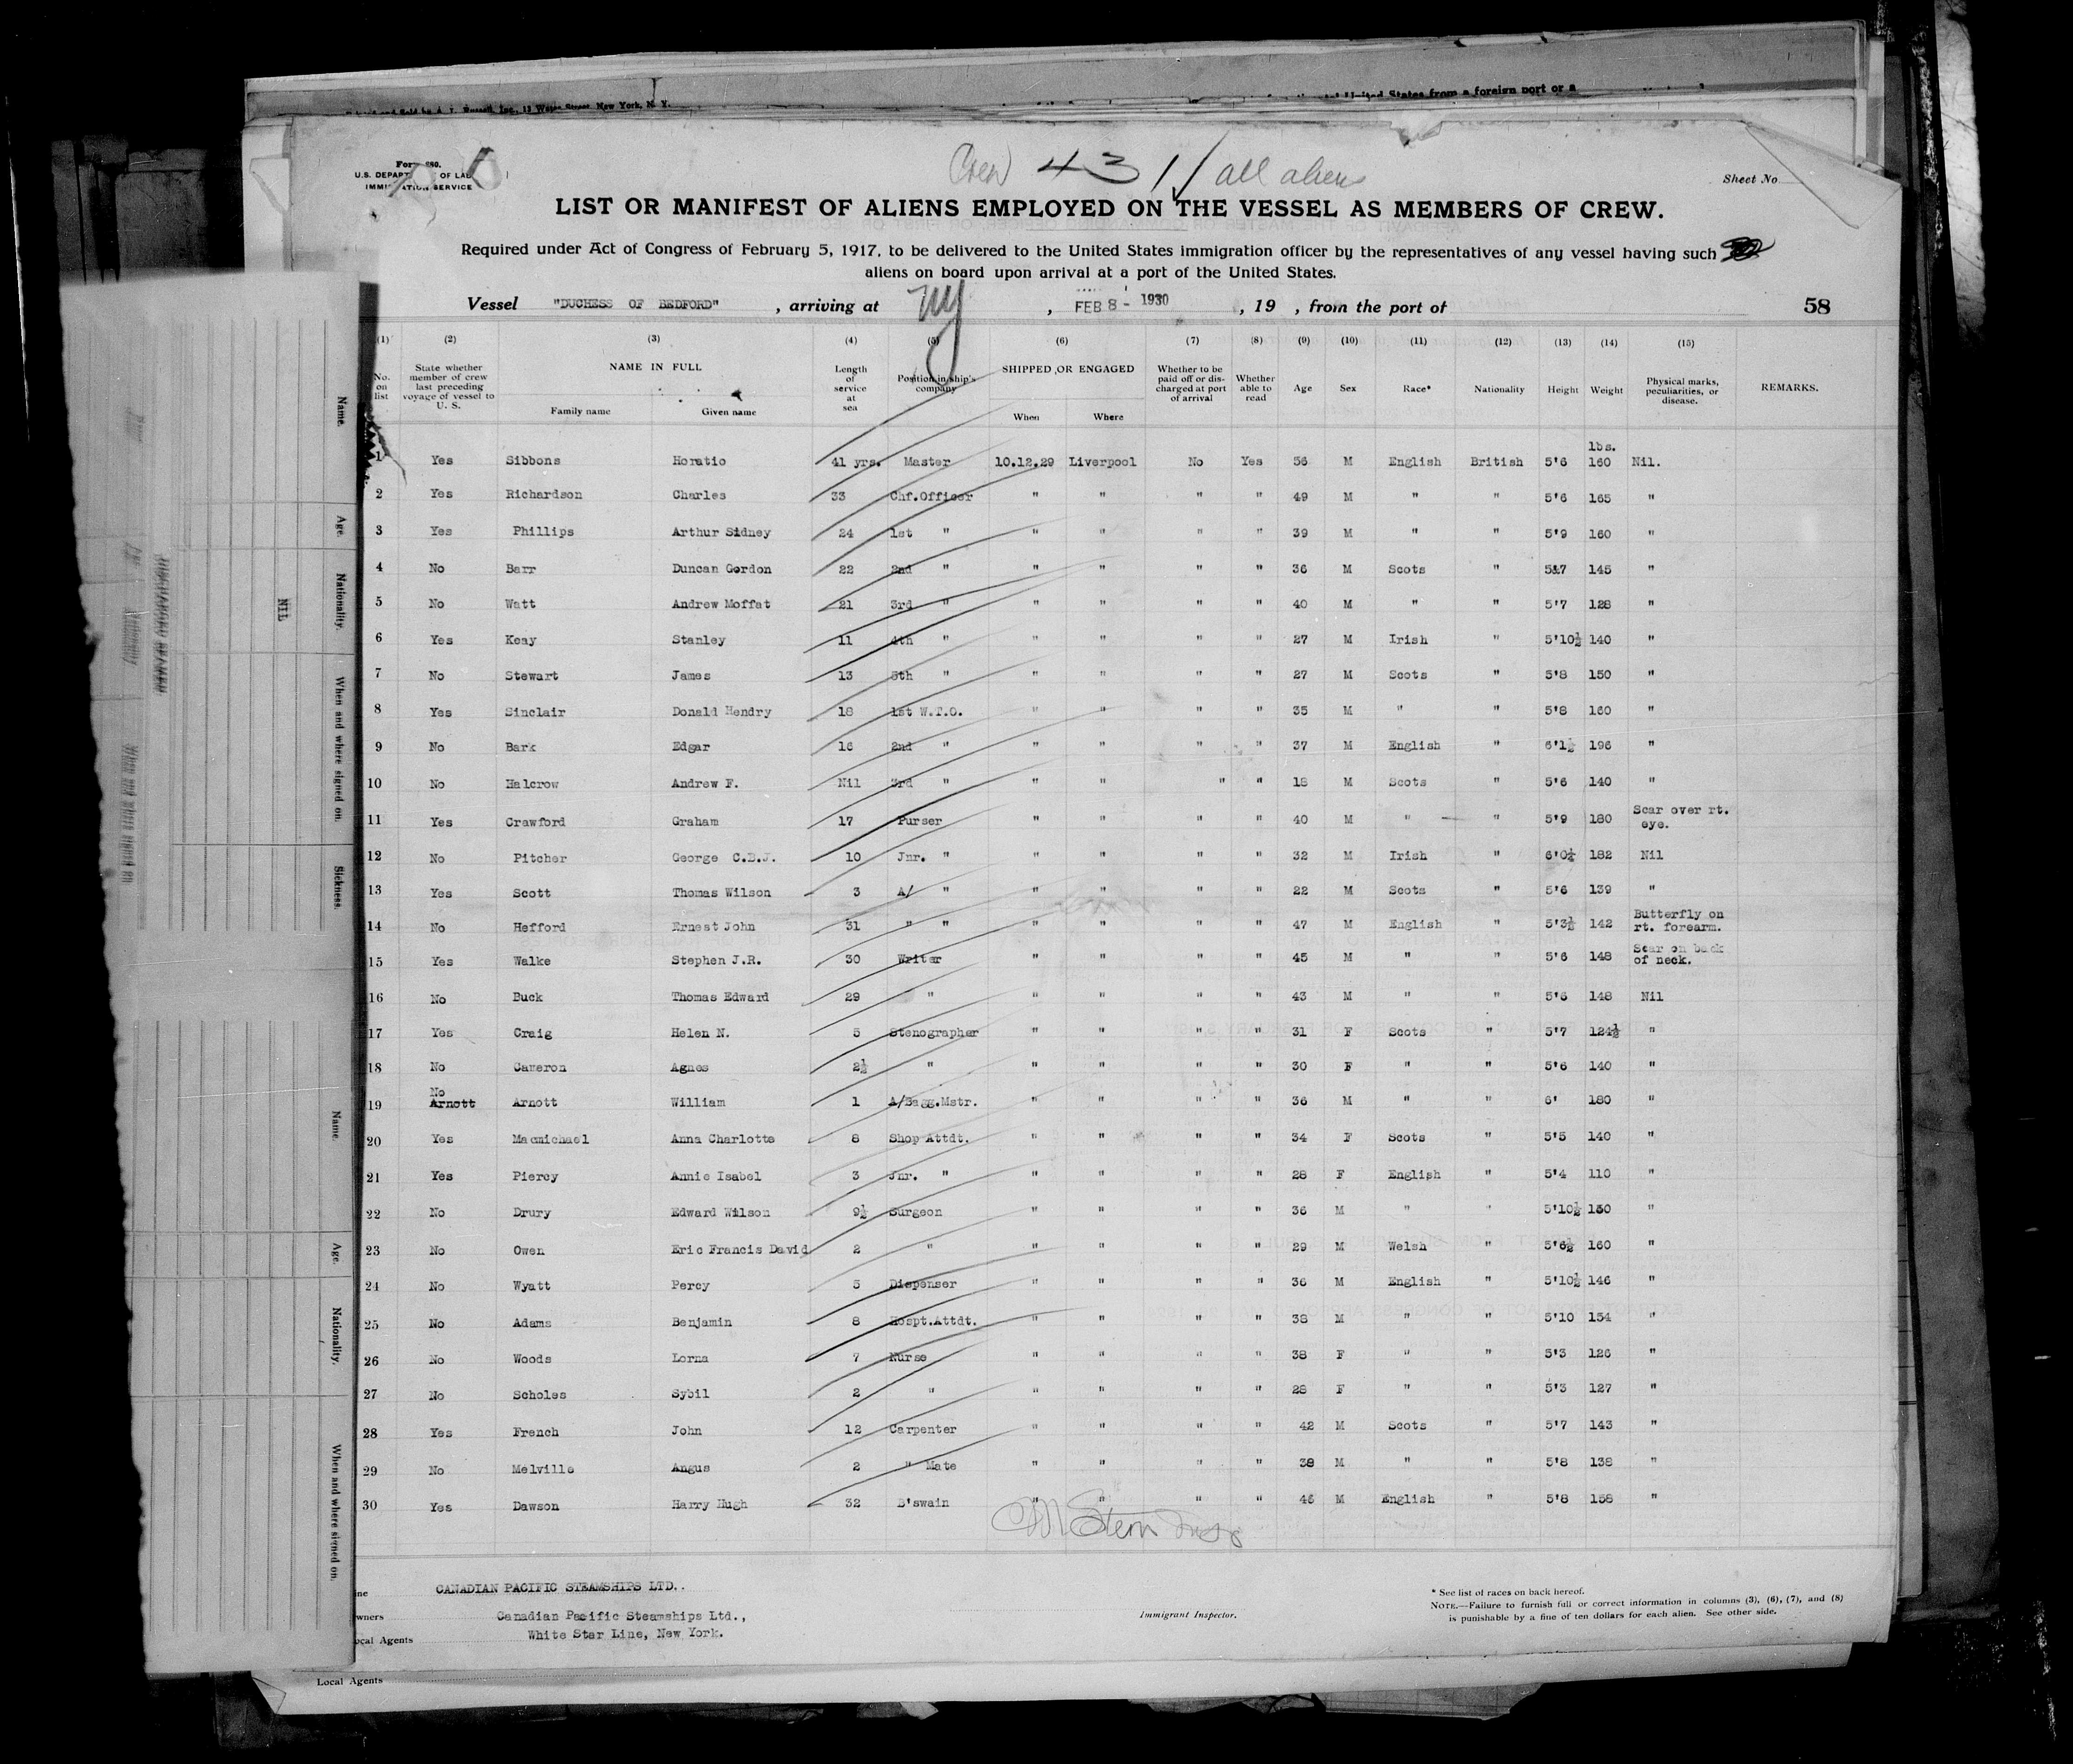 United States from a foreign port or a
and Sold by A. T. Russell, Inc., 13 Water Street, New York, N. Y.
Crew 431 ✓ all aliens
U.S. DEPART OF LAB
IMMIGRATION SERVICE
Sheet No
LIST OR MANIFEST OF ALIENS EMPLOYED ON THE VESSEL AS MEMBERS OF CREW.
Required under Act of Congress of February 5, 1917, to be delivered to the United States immigration officer by the representatives of any vessel having such
aliens on board upon arrival at a port of the United States.
Vessel "DUCHESS OF BEDFORD" , arriving at NY , FEB 8 - 1930 , 19 , from the port of 58
(1) (2) (3) (4) (5) (6) (7) (8) (9) (10) (11) (12) (13) (14) (15)
No. on list State whether member of crew last preceding voyage of vessel to U. S. NAME IN FULL Family name Given name Length of service at sea Position in ship's company SHIPPED OR ENGAGED When Where Whether to be paid off or discharged at port of arrival Whether able to read Age Sex Race* Nationality Height Weight Physical marks, peculiarities, or disease. REMARKS.
lbs.
1 Yes Sibbons Horatio 41 yrs. Master 10.12.29 Liverpool No Yes 56 M English British 5'6 160 Nil.
2 Yes Richardson Charles 33 Chf.Officer " " " " 49 M " " 5'6 165 "
3 Yes Phillips Arthur Sidney 24 1st " " " " " 39 M " " 5'9 160 "
4 No Barr Duncan Gordon 22 2nd " " " " " 36 M Scots " 5'7 145 "
5 No Watt Andrew Moffat 21 3rd " " " " " 40 M " " 5'7 128 "
6 Yes Keay Stanley 11 4th " " " " " 27 M Irish " 5'10½ 140 "
7 No Stewart James 13 5th " " " " " 27 M Scots " 5'8 150 "
8 Yes Sinclair Donald Hendry 18 1st W.T.O. " " " " 35 M " " 5'8 160 "
9 No Bark Edgar 16 2nd " " " " " 37 M English " 6'1½ 196 "
10 No Halcrow Andrew F. Nil 3rd " " " " " 18 M Scots " 5'6 140 "
11 Yes Crawford Graham 17 Purser " " " " 40 M " " 5'9 180 Scar over rt. eye.
12 No Pitcher George C.D.J. 10 Jnr. " " " " " 32 M Irish " 6'0½ 182 Nil
13 Yes Scott Thomas Wilson 3 A/ " " " " " 22 M Scots " 5'6 139 "
14 No Hefford Ernest John 31 " " " " " " 47 M English " 5'3½ 142 Butterfly on rt. forearm.
15 Yes Walke Stephen J.R. 30 Writer " " " " 45 M " " 5'6 148 Scar on back of neck.
16 No Buck Thomas Edward 29 " " " " " 43 M " " 5'6 148 Nil
17 Yes Craig Helen N. 5 Stenographer " " " " 31 F Scots " 5'7 124½ "
18 No Cameron Agnes 2½ " " " " " 30 F " " 5'6 140 "
No
19 Arnott Arnott William 1 A/Bagg.Mstr. " " " " 36 M " " 6' 180 "
20 Yes Macmichael Anna Charlotte 8 Shop Attdt. " " " " 34 F Scots " 5'5 140 "
21 Yes Piercy Annie Isabel 3 Jnr. " " " " " 28 F English " 5'4 110 "
22 No Drury Edward Wilson 9½ Surgeon " " " " 36 M " " 5'10½ 150 "
23 No Owen Eric Francis David 2 " " " " " 29 M Welsh " 5'6½ 160 "
24 No Wyatt Percy 5 Dispenser " " " " 36 M English " 5'10½ 146 "
25 No Adams Benjamin 8 Hospt.Attdt. " " " " 38 M " " 5'10 154 "
26 No Woods Lorna 7 Nurse " " " " 38 F " " 5'3 126 "
27 No Scholes Sybil 2 " " " " " 28 F " " 5'3 127 "
28 Yes French John 12 Carpenter " " " " 42 M Scots " 5'7 143 "
29 No Melville Angus 2 " Mate " " " " 38 M " " 5'8 138 "
30 Yes Dawson Harry Hugh 32 B'swain " " " " 46 M English " 5'8 158 "
Stern Insp
CANADIAN PACIFIC STEAMSHIPS LTD.
wners Canadian Pacific Steamships Ltd.,
ocal Agents White Star Line, New York.
Immigrant Inspector.
* See list of races on back hereof.
NOTE.—Failure to furnish full or correct information in columns (3), (6), (7), and (8)
is punishable by a fine of ten dollars for each alien. See other side.
Local Agents
Name.
Age.
Nationality.
When and where signed on.
Sickness.
NIL
Name.
Age.
Nationality.
When and where signed on.